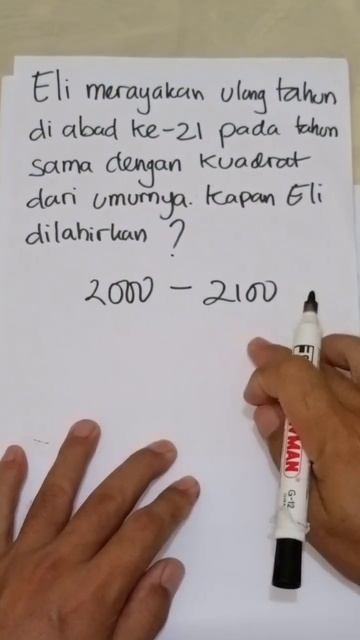 Eli merayakan ulang tahun
di abad ke-21 pada tahun
sama dengan kuadrat
dari umurnya. Kapan Eli
dilahirkan ?
2000 - 2100
G-12